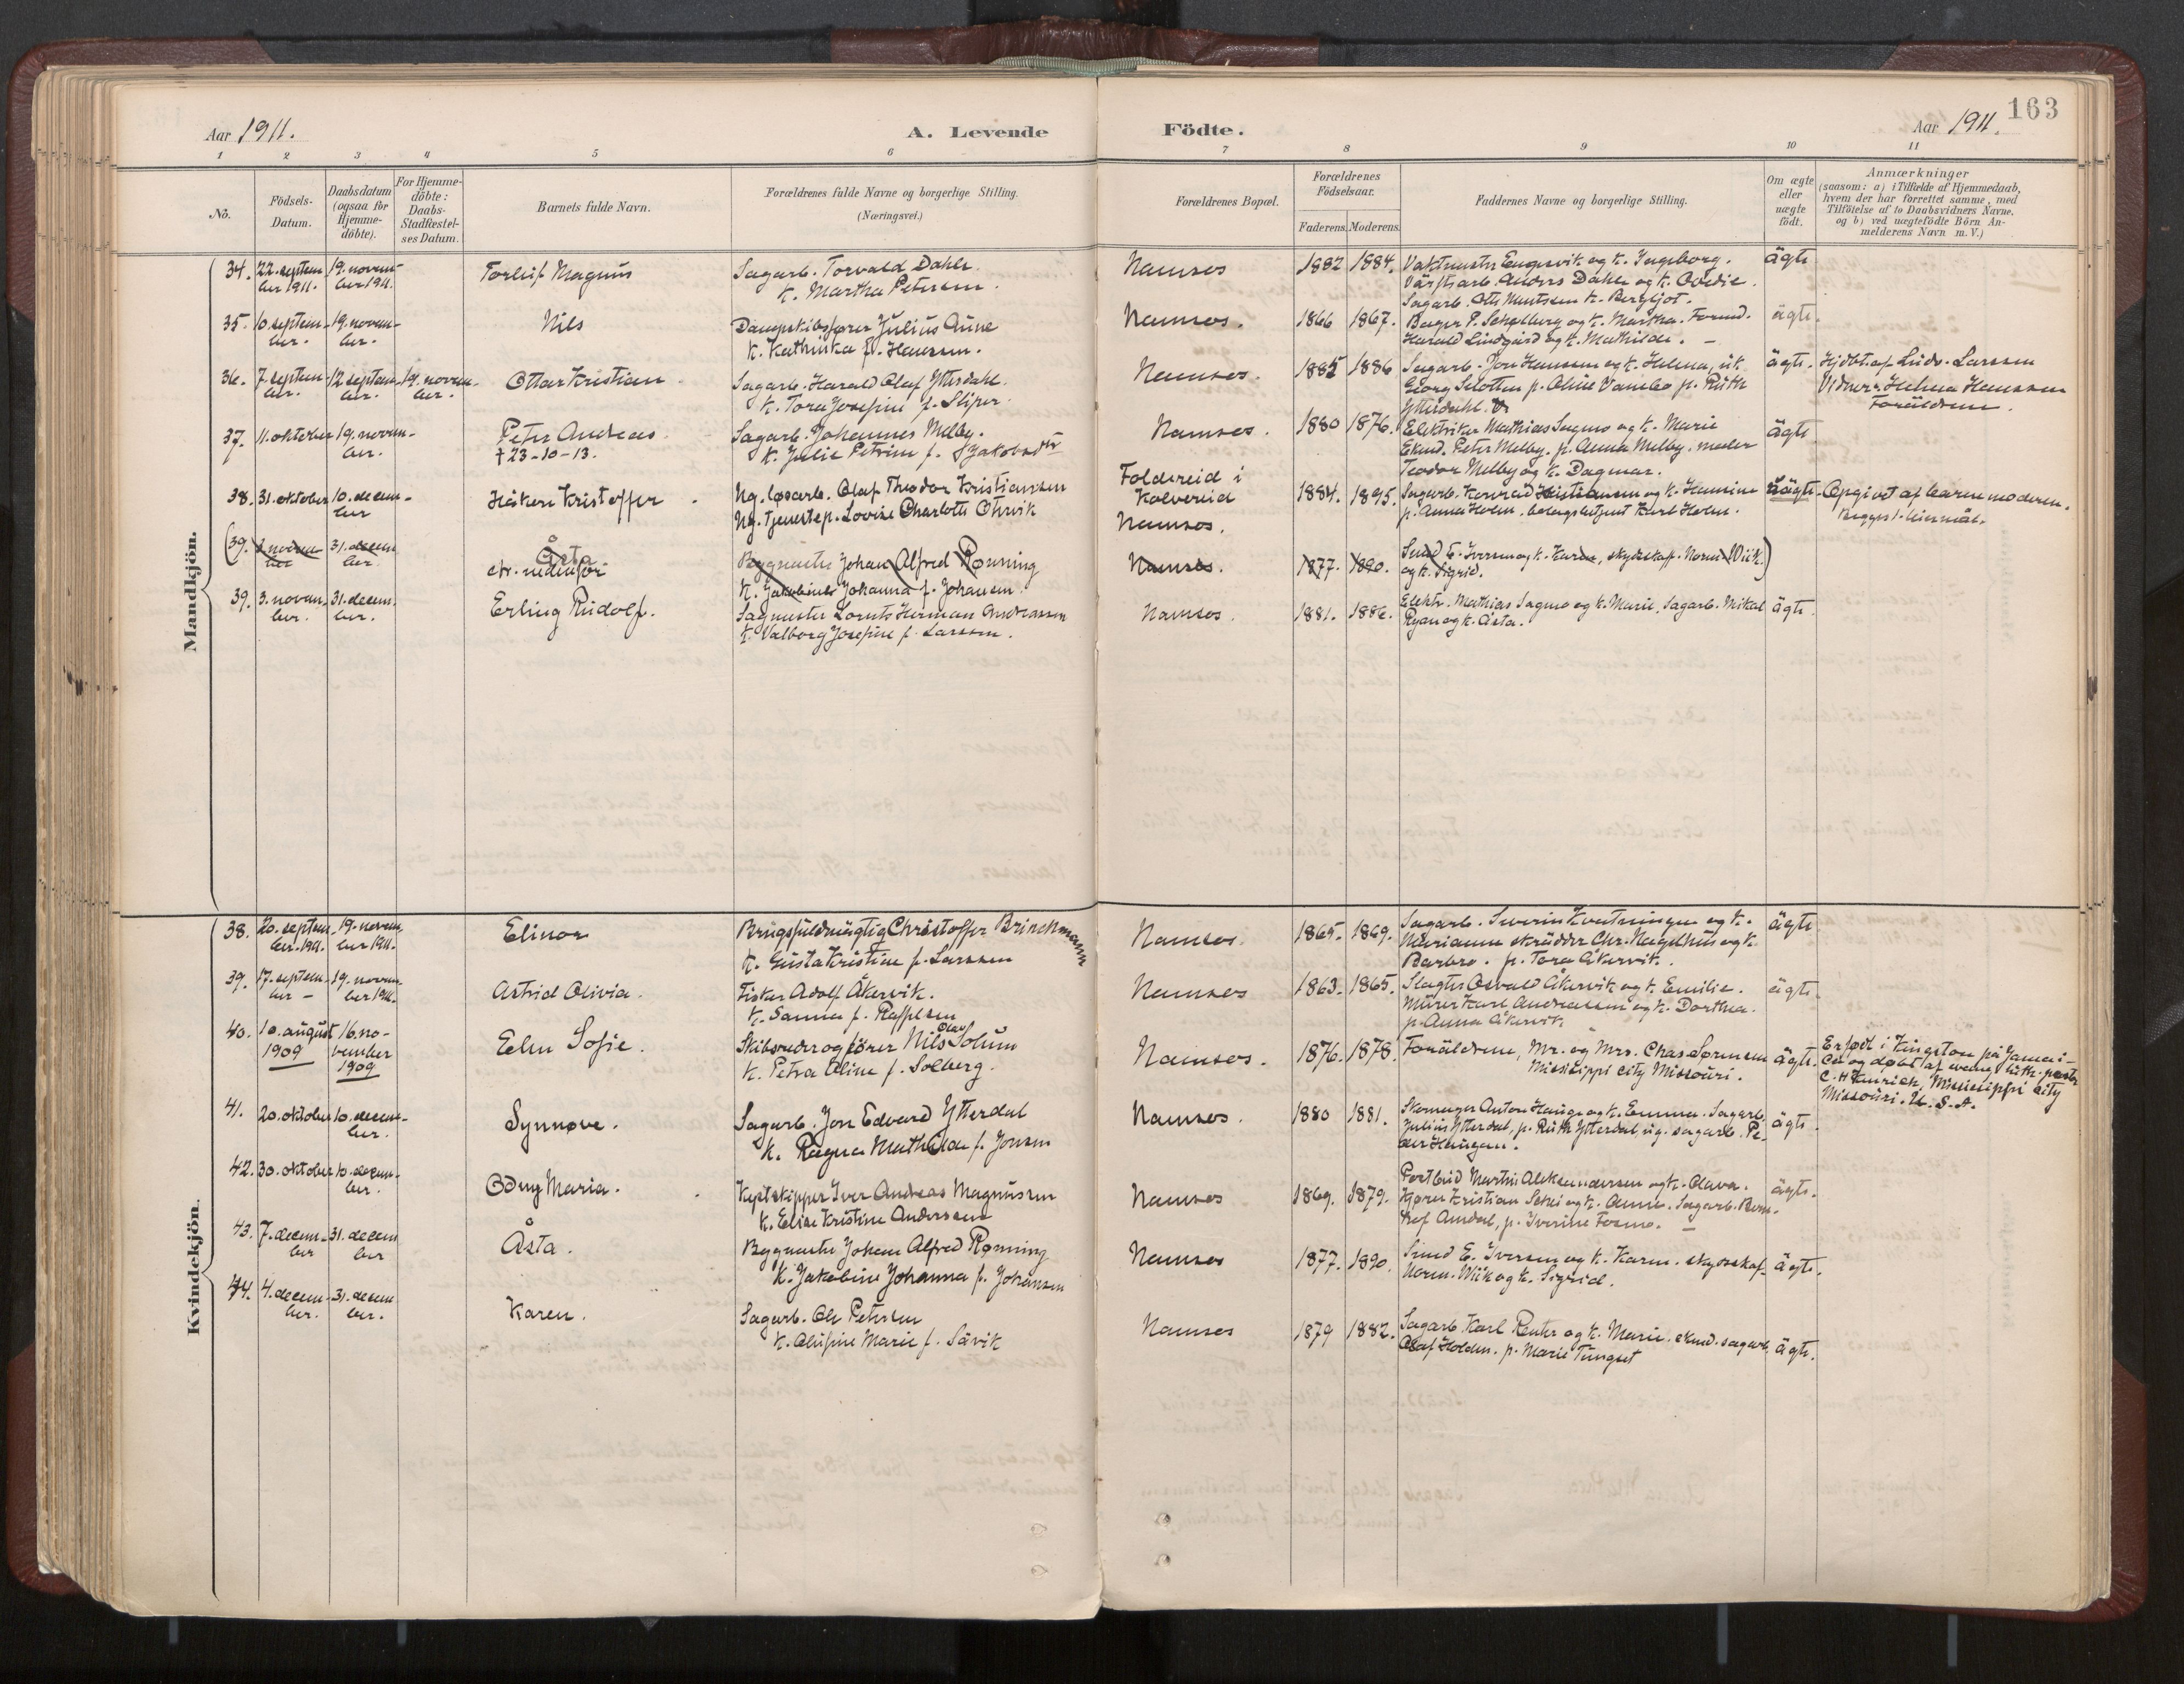 Aar 1911.
A. Levende
Födte.
Aar 1911.
163
1 2 3 4 5 6 7 8 9 10 11
No.
Födsels-
Datum.
Daabsdatum
(ogsaa for
Hjemme-
döbte).
For Hjemme-
döbte:
Daabs-
Stadfæstel-
ses Datum.
Barnets fulde Navn.
Forældrenes fulde Navne og borgerlige Stilling.
(Næringsvei.)
Forældrenes Bopæl.
Forældrenes
Födselsaar.
Faderens. Moderens.
Faddernes Navne og borgerlige Stilling.
Om ægte
eller
uægte
födt.
Anmærkninger
(saasom: a) i Tilfælde af Hjemmedaab,
hvem der har forrettet samme, med
Tilföielse af to Daabsvidners Navne,
og b) ved uægtefödte Börn An-
melderens Navn m. V.)
Mandkjön.
34. 22. septem-
ber 1911.
19. novem-
ber 1911.
Torleif Magnus
Sagarb. Torvald Dahle
k. Martha Petersen.
Namsos
1882 1884.
Vaktmester Engesvik og k. Ingeborg.
arb. Anders Dahle og k. Ovedie.
Sagarb. Otto k. Bergljot.
ägte
35. 10. septem-
ber.
19. novem-
ber.
Nils
Dampskibsfører Julius Aune
k. Kathinka f. Hanssen.
Namsos.
1866 1867.
Bager P. Schølberg og k. Martha. Formd.
Harald Lindgård og k. Mathilde. –
ägte.
36. 7. septem-
ber.
12. septem-
ber.
19. novem-
ber.
Ottar Kristian
Sagarb. Harald Olaf Ytterdahl.
k. Tora Josefine f. Sliper.
Namsos.
1885 1886
Sagarb. Jon Hanssen og k. Helena, uk.
Georg Slotten p. Oline p. Ruth
Ytterdahl.
ägte.
Hjdbt. af Ludv. Larssen
Vidner: Helena Hanssen
Forældrene.
37. 11. oktober
19. novem-
ber.
Peter Andreas
† 23-10-13.
Sagarb. Johannes Melby.
k. Julie Petrine f. Jakobsdtr
Namsos.
1880 1876.
Elektriker Mathias Sagmo og k. Marie
Ekmd. Peter Melby. p. Anna Melby, maler
Teodor Melby og k. Dagmar.
ägte
38. 31. oktober
10. decem-
ber
Håken Kristoffer
Ug. løsarb. Olaf Theodor Kristianssen
Ug. tjenestep. Lovise Charlotte Otervik
Foldereid i
Kolvereid
Namsos.
1884. 1895.
Sagarb. Konrad Kristiansen og k. Hansine
p. Anna Holm, bolagsbetjent Karl Holm.
uägte
Opgivet af barnemoderen.
Begges 1. leiermål.
(39. 31. decem
ber.
Åsta
str. nedenfor
Bygmester Johan Alfred Rønning
k. Jakobine Johanna f. Johansen
Namsos.
1877. 1890.
Smed E. Iversen og k. Karen, skydsskaf. Norm. Wiik)
og k. Sigrid.
39. 3. novem.
ber.
31. decem.
ber.
Erling Rudolf.
Sagmester Lorents Herman Andreassen
k. Valborg Josefine f. Larssen.
Namsos.
1881. 1886.
Elektr. Mathias Sagmo og k. Marie, Sagarb. Mikal
Ryan og k. Åsta.
ägte.
Kvindekjön.
38. 20. septem
ber. 1911.
19. novem
ber 1911.
Elinor
Brugsfuldmægtig Christoffer Brinchmann
k. Gusta Kristine f. Larssen
Namsos.
1865. 1869.
Sagarb. Severin og k.
Marianne skrädder Chr. og k.
Barbro. p. Tora Åkervik.
ägte
39. 17. septem.
ber –
19. novem
ber 1911.
Astrid Olivia.
Fisker Adolf Åkervik.
k. Sanna f.
Namsos
1863. 1865.
Slagter Osvald Åkervik og k. Emilie.
Murer Karl Andreassen og k. Dorthea.
p. Anna Åkervik
ägte.
40. 10. august
1909
16. no-
vember
1909
Ellen Sofie.
Skibsreder og fører Nils Olav Solum
k. Petra Oline f. Solberg.
Namsos.
1876. 1878.
Forældrene, Mr. og Mrs. Chas Sørensen
Missisippi City Missouri.
ägte.
Er født i Kingston på Jamai-
ca og døbt af evang. luth. pastor
C. H. , Mississippi City
Missouri. U. S. A.
41. 20. oktober
10. decem-
ber.
Synnøve.
Sagarb. Jon Edvard Ytterdal
k. Ragna Mathilda f. Jonsen
Namsos.
1880 1881.
Skomager Anton Hauge og k. Emma. Sagarb.
Julius Ytterdal, p. Ruth Ytterdal, ug. sagarb. Pe-
der Haugan.
ägte.
42. 30. oktober
10. decem-
ber.
Odny Maria.
Kystskipper Iver Andreas Magnussen
k. Elise Kristine Anderssen
Namsos
1869. 1879.
Postbud Martin Aleksandersen og k. Olava.
Kjører Kristian og k. Anne. Sagarb. Bern-
hof Amdal, p. Iverine Fosmo. –
ägte.
43. 7. decem-
ber
31. decem
ber
Åsta.
Bygmester Johan Alfred Rønning
k. Jakobine Johanna f. Johansen
Namsos
1877. 1890.
Smed E. Iversen og k. Karen. skydsskaf-
Norm. Wiik og k. Sigrid.
ägte.
44. 4. decem-
ber.
31. decem
ber.
Karen.
Sagarb. Ole Petersen
k. Olufine Marie f. Sävik
Namsos
1879 1882.
Sagarb. Karl Reuter og k. Marie. ekmd. sagarb.
Olaf Holden. p. Marie Tungset
ägte.